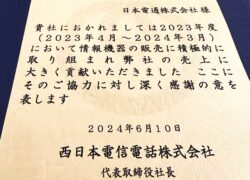 日本電通株式会社 様
貴社におかれましては2023年度
(2023年4月～2024年3月)
において情報機器の販売に積極的に
取り組まれ弊社の売上に
大きく貢献いただきました ここに
そのご協力に対し深く感謝の意を
表します
2024年6月10日
西日本電信電話株式会社
代表取締役社長